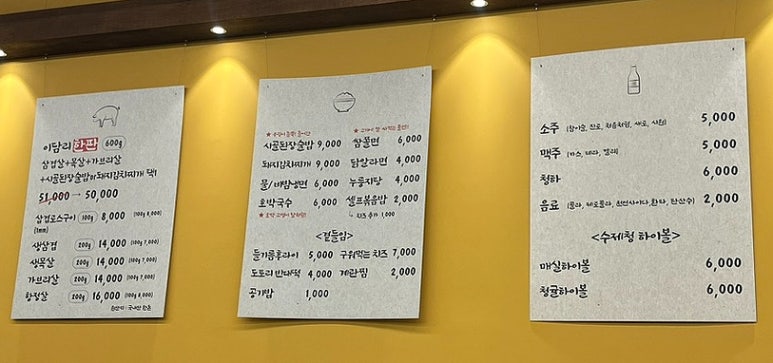 이담리 한판 600g
삼겹살+목살+가브리살
+시골된장술밥or돼지김치찌개 택1
51,000 → 50,000
삼겹로스구이 100g 8,000 (100g 8,000)
(1mm)
생삼겹 200g 14,000 (100g 7,000)
생목살 200g 14,000 (100g 7,000)
가브리살 200g 14,000 (100g 7,000)
항정살 200g 16,000 (100g 8,000)
원산지: 국내산 한돈
시골된장술밥 9,000
돼지김치찌개 9,000
물/비빔냉면 6,000
호박국수 6,000
쫄쫄면 6,000
닭알라면 4,000
누룽지탕 4,000
셀프볶음밥 2,000
치즈 추가 1,000
<곁들임>
들기름후라이 5,000 구워먹는 치즈 7,000
도토리 반대떡 4,000 계란찜 2,000
공기밥 1,000
소주 (참이슬, 진로, 처음처럼, 새로, 시원) 5,000
맥주 (카스, 테라, 켈리) 5,000
청하 6,000
음료 (콜라, 제로콜라, 천연사이다, 환타, 탄산수) 2,000
<수제청 하이볼>
매실하이볼 6,000
청귤하이볼 6,000